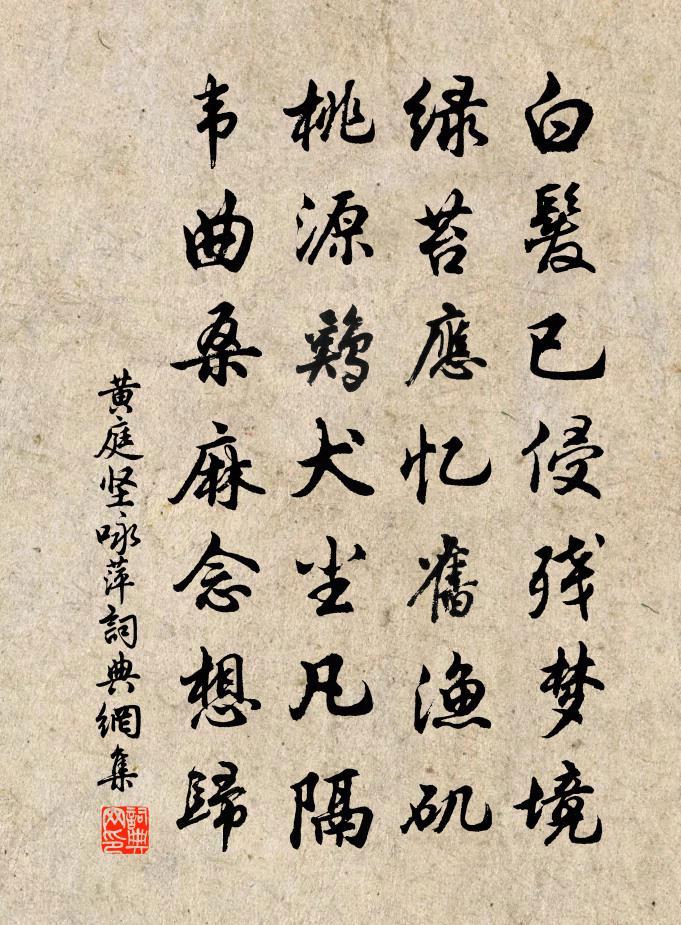 白髮已侵残梦境
绿苔應忆舊渔矶
桃源鷄犬尘凡隔
韦曲桑麻念想歸
黄庭坚咏萍詞典網集
詞典网印